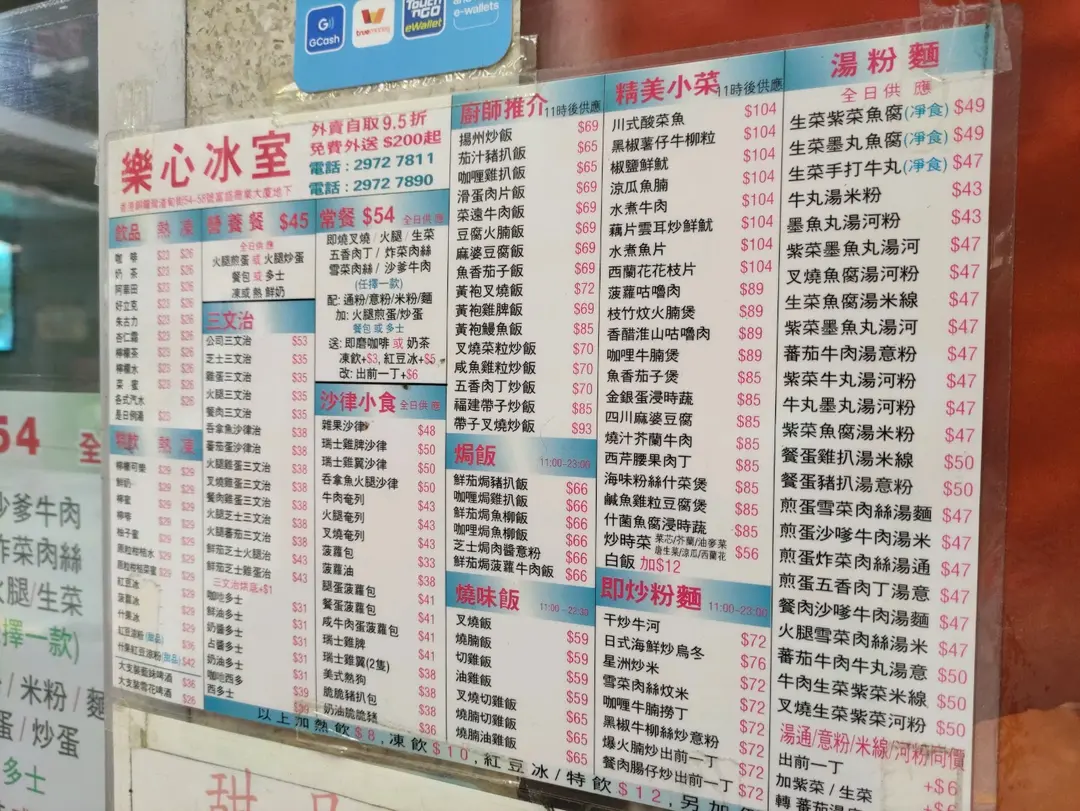 GCash
truemoney
Touch
'nGO
eWallet
e-wallets
樂心冰室
外賣自取 9.5 折
免費外送 $200起
電話 : 2972 7811
電話 : 2972 7890
飲品 熱 凍
咖啡 $23 $26
奶茶 $23 $26
阿華田 $23 $26
好立克 $23 $26
朱古力 $23 $26
杏仁霜 $23 $26
檸檬茶 $23 $26
檸檬水 $23 $26
菜蜜 $23 $26
各式汽水 $26
是日例湯 $25
特飲 熱 凍
檸檬可樂 $29 $29
鮮奶 $29 $29
檸蜜 $29 $29
柚子蜜 $29 $29
紅豆冰 $29
菠蘿冰 $29
什果冰 $29
紅豆涼粉(甜品) $36
什果紅豆涼粉(甜品) $42
大支裝藍妹啤酒 $36
大支裝雪花啤酒 $26
營養餐 $45
全日供應
火腿煎蛋 或 火腿炒蛋
餐包 或 多士
凍或熱 鮮奶
三文治
公司三文治 $53
芝士三文治 $35
雞蛋三文治 $35
火腿三文治 $35
餐肉三文治 $35
吞拿魚沙律治 $38
蕃茄蛋沙律治 $38
火腿雞蛋三文治 $38
叉燒雞蛋三文治 $38
餐肉雞蛋三文治 $38
火腿芝士三文治 $38
火腿蕃茄三文治 $38
鮮茄芝士火腿治 $43
鮮茄芝士雞蛋治 $43
三文治烘底+$1
咖吔多士 $31
鮮油多士 $31
奶醬多士 $31
占醬多士 $31
奶油多士 $31
咖吔西多 $31
西多士 $39
常餐 $54 全日供應
即燒叉燒 / 火腿 / 生菜
五香肉丁 / 炸菜肉絲
雪菜肉絲 / 沙爹牛肉
(任擇一款)
配: 通粉/意粉/米粉/麵
加: 火腿煎蛋/炒蛋
餐包 或 多士
送: 即磨咖啡 或 奶茶
凍飲+$3, 紅豆冰+$5
改: 出前一丁+$6
沙律小食 全日供應
雜果沙律 $48
瑞士雞脾沙律 $50
瑞士雞翼沙律 $50
吞拿魚火腿沙律 $50
牛肉奄列 $43
火腿奄列 $43
叉燒奄列 $43
菠蘿包
菠蘿油 $33
腿蛋菠蘿包 $38
餐蛋菠蘿包 $41
咸牛肉蛋菠蘿包 $41
瑞士雞脾 $41
瑞士雞翼(2隻) $41
美式熱狗
脆脆豬扒包 $38
奶油脆脆豬 $36
廚師推介 11時後供應
揚州炒飯 $69
茄汁豬扒飯 $65
咖喱雞扒飯 $65
滑蛋肉片飯 $69
菜遠牛肉飯 $69
豆腐火腩飯 $69
麻婆豆腐飯 $69
魚香茄子飯 $69
黃袍叉燒飯 $72
黃袍雞脾飯 $69
黃袍鰻魚飯 $85
叉燒菜粒炒飯 $70
咸魚雞粒炒飯 $70
五香肉丁炒飯 $70
福建帶子炒飯 $85
帶子叉燒炒飯 $93
焗飯 11:00-23:00
鮮茄焗豬扒飯 $66
咖喱焗雞扒飯 $66
鮮茄焗魚柳飯 $66
咖哩焗魚柳飯 $66
芝士焗肉醬意粉 $66
鮮茄焗菠蘿牛肉飯 $66
燒味飯 11:00-22:30
叉燒飯 $59
燒腩飯 $59
切雞飯 $59
油雞飯 $59
叉燒切雞飯 $65
燒腩切雞飯 $65
燒腩油雞飯 $65
精美小菜 11時後供應
川式酸菜魚 $104
黑椒薯仔牛柳粒 $104
椒鹽鮮魷 $104
涼瓜魚腩 $104
水煮牛肉 $104
藕片雲耳炒鮮魷 $104
水煮魚片 $104
西蘭花花枝片 $104
菠蘿咕嚕肉 $89
枝竹炆火腩煲 $89
香醋淮山咕嚕肉 $89
咖哩牛腩煲 $89
魚香茄子煲 $85
金銀蛋浸時蔬 $85
四川麻婆豆腐 $85
燒汁芥蘭牛肉 $85
西芹腰果肉丁 $85
海味粉絲什菜煲 $85
鹹魚雞粒豆腐煲 $85
什菌魚腐浸時蔬 $85
炒時菜 菜芯/芥蘭/油麥菜 唐生菜/涼瓜/西蘭花 $56
白飯 加$12
即炒粉麵 11:00-23:00
干炒牛河 $72
日式海鮮炒烏冬 $76
星洲炒米 $72
雪菜肉絲炆米 $72
咖喱牛腩撈丁 $72
黑椒牛柳絲炒意粉 $72
爆火腩炒出前一丁 $72
餐肉腸仔炒出前一丁 $72
湯粉麵
全日供應
生菜紫菜魚腐(凈食) $49
生菜墨丸魚腐(凈食) $49
生菜手打牛丸(凈食) $47
牛丸湯米粉 $43
墨魚丸湯河粉 $43
紫菜墨魚丸湯河 $47
叉燒魚腐湯河粉 $47
生菜魚腐湯米線 $47
紫菜墨魚丸湯河 $47
蕃茄牛肉湯意粉 $47
紫菜牛丸湯河粉 $47
牛丸墨丸湯河粉 $47
紫菜魚腐湯米粉 $47
餐蛋雞扒湯米線 $50
餐蛋豬扒湯意粉 $50
煎蛋雪菜肉絲湯麵 $47
煎蛋沙嗲牛肉湯米 $47
煎蛋炸菜肉絲湯通 $47
煎蛋五香肉丁湯意 $47
餐肉沙嗲牛肉湯麵 $47
火腿雪菜肉絲湯米 $47
蕃茄牛肉牛丸湯意 $50
牛肉生菜紫菜米線 $50
叉燒生菜紫菜河粉 $50
湯通/意粉/米線/河粉同價
出前一丁 +$6
加紫菜 / 生菜 +$6
轉 蕃茄湯底
以上加熱飲 $8, 凍飲 $10, 紅豆冰/特飲 $12, 另加
54 全
沙爹牛肉
炸菜肉絲
火腿/生菜
擇一款)
/ 米粉 / 麵
蛋 / 炒蛋
多士
甜品